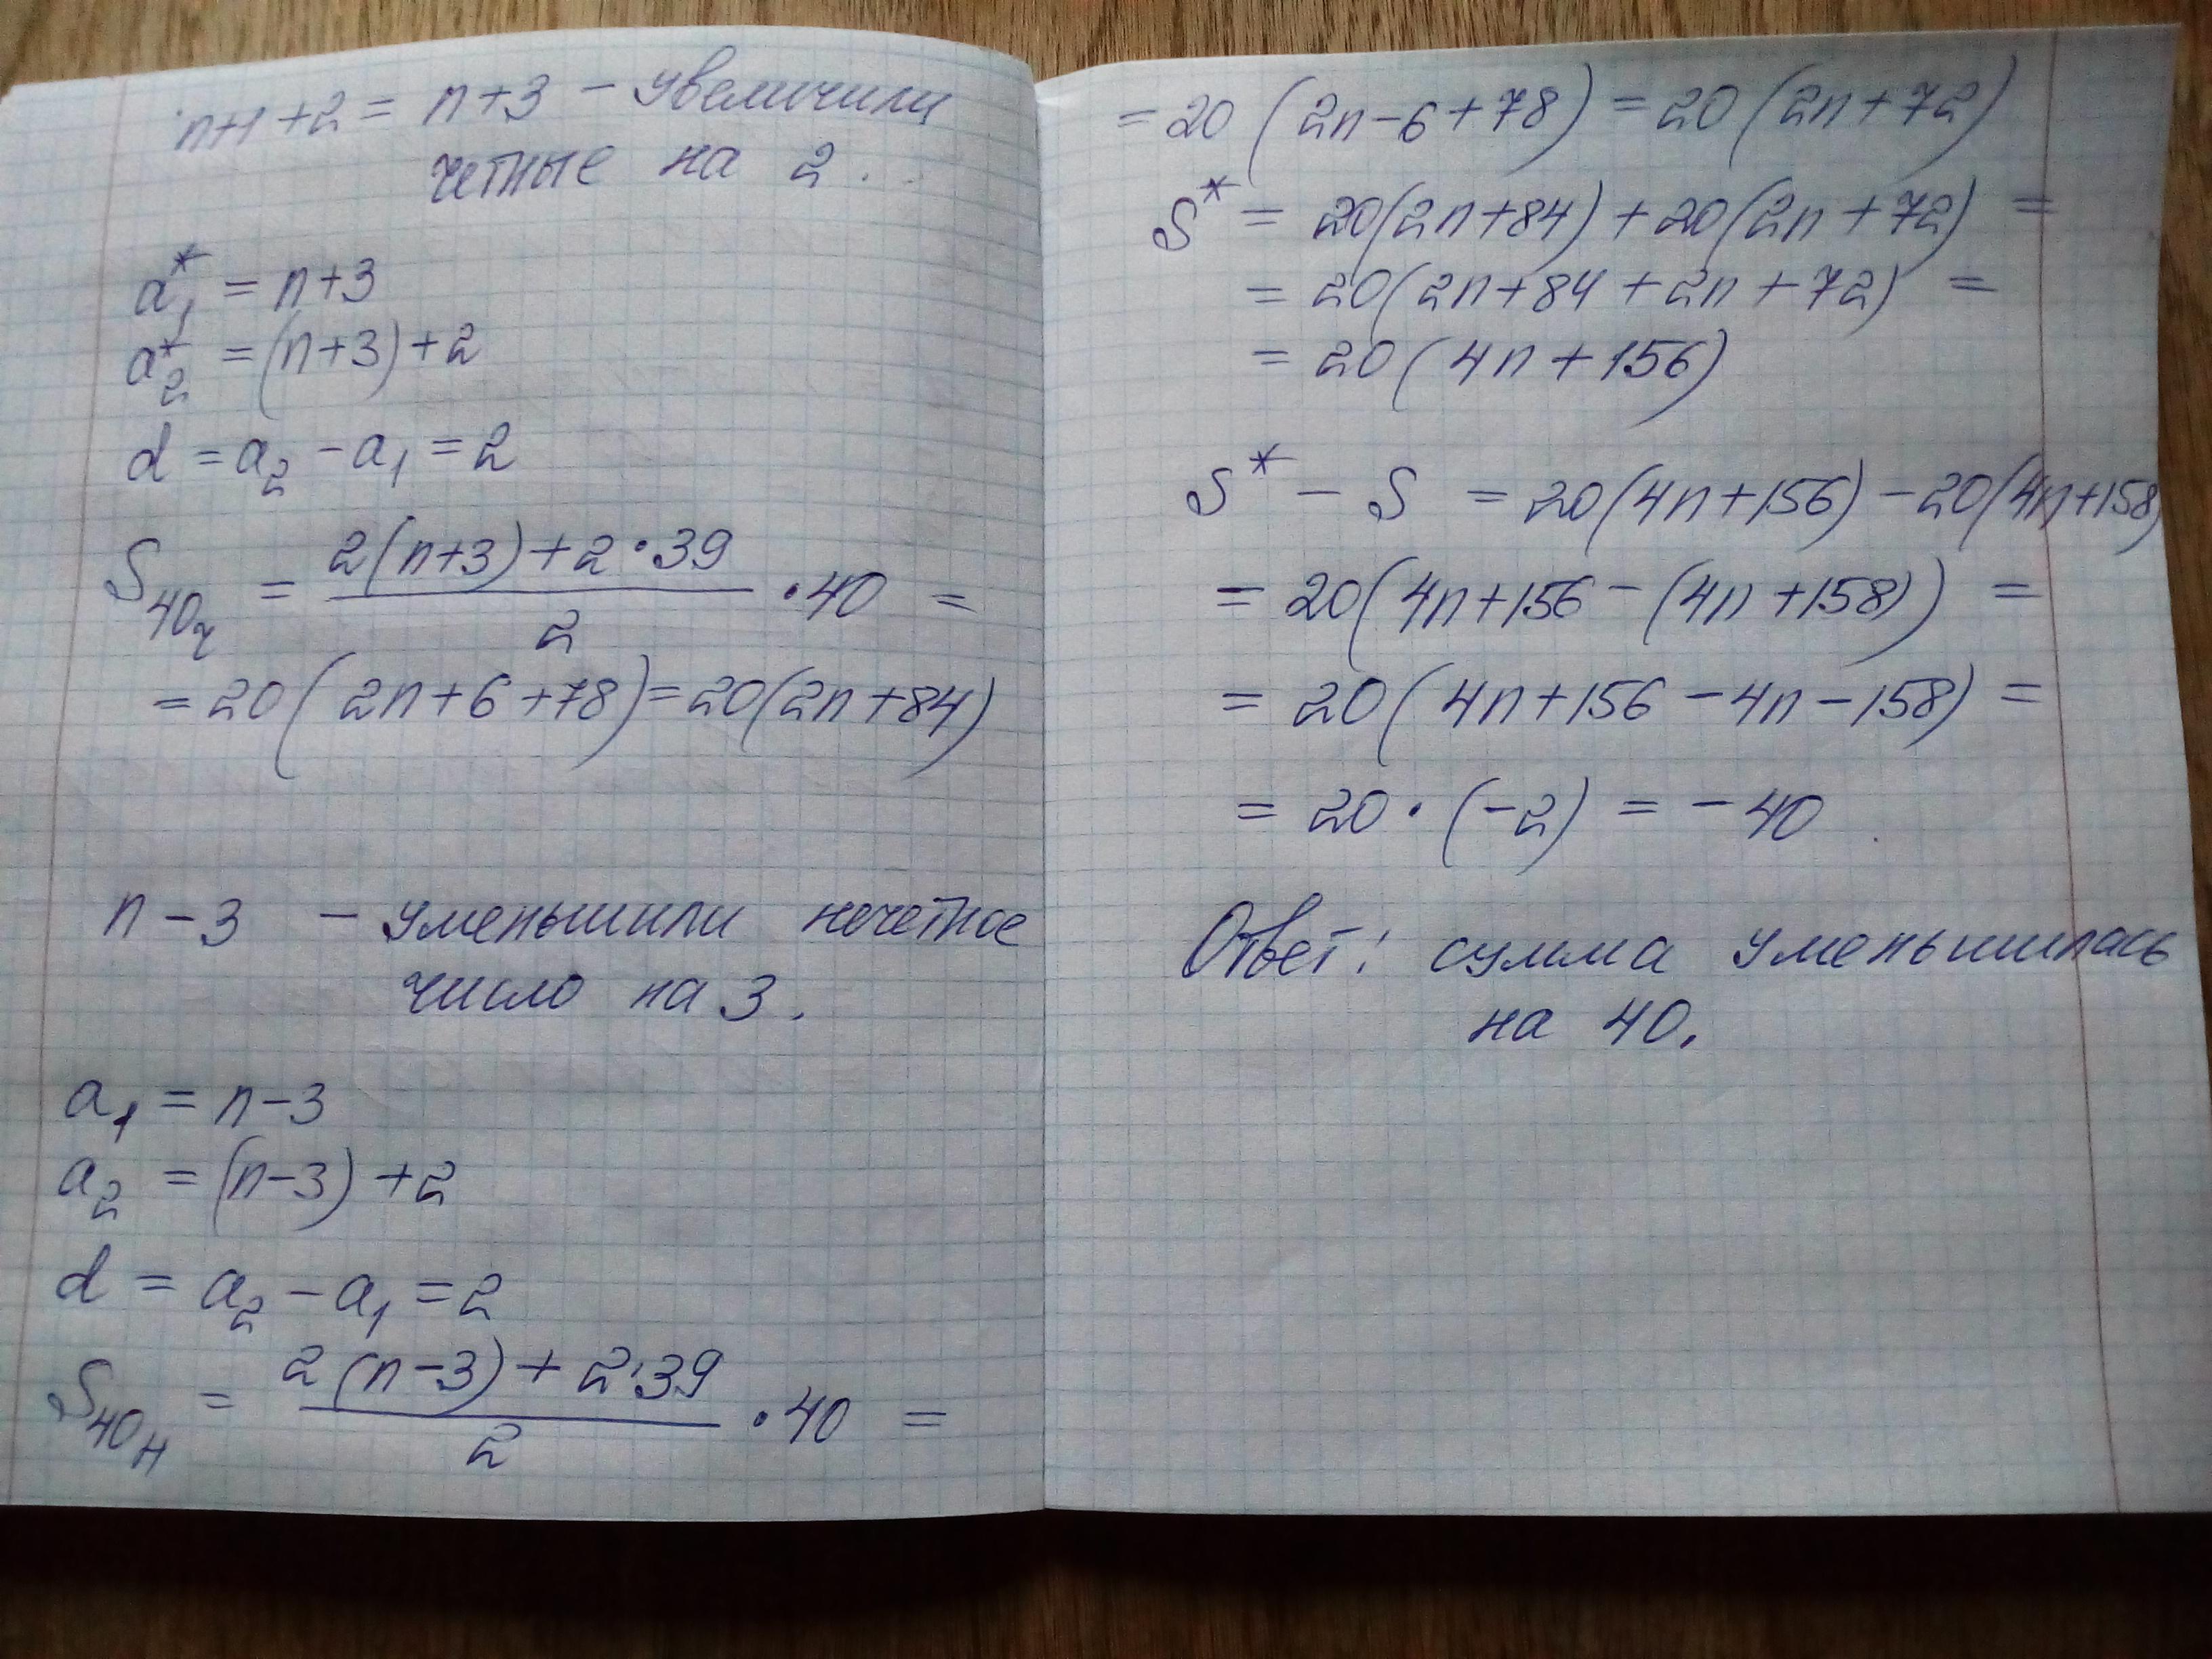 n+1+2 = n+3 – увеличили
четные на 2.
a₁* = n+3
a₂* = (n+3)+2
d = a₂ – a₁ = 2
S₄₀ч = (2(n+3)+2·39)/2 · 40 =
= 20(2n+6+78) = 20(2n+84)
n – 3 – уменьшили нечетное
число на 3.
a₁ = n–3
a₂ = (n–3)+2
d = a₂ – a₁ = 2
S₄₀н = (2(n–3)+2·39)/2 · 40 =
= 20(2n–6+78) = 20(2n+72)
S* = 20(2n+84)+20(2n+72) =
= 20(2n+84+2n+72) =
= 20(4n+156)
S* – S = 20(4n+156) – 20(4n+158)
= 20(4n+156 – (4n+158)) =
= 20(4n+156 – 4n – 158) =
= 20·(–2) = –40
Ответ: сумма уменьшилась
на 40.